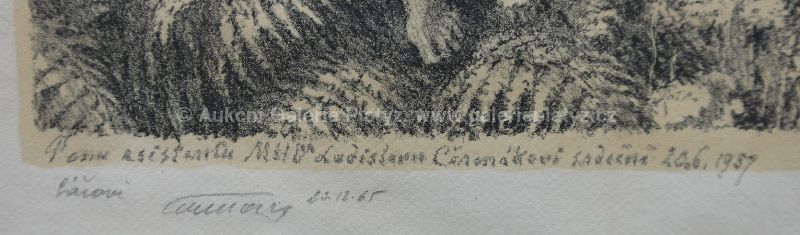 © Aukční Galerie Platýz - www.galerieplatyz.cz
Panu asistentu MUDr Ladislavu Čermákovi srdečně 20.6.1957
23.12.65